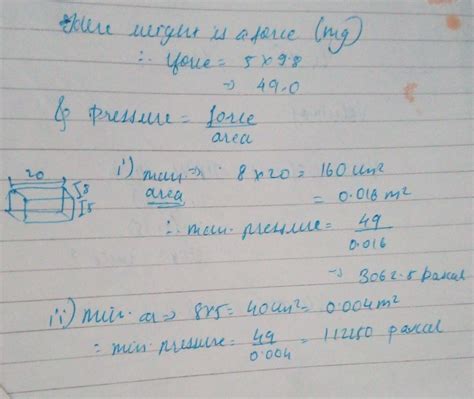 Here weight is a force (mg)
∴ force = 5 × 9.8
⇒ 49.0
& Pressure = force
area
20
8
5
i) max ⇒ 8 × 20 = 160 cm²
area
= 0.016 m²
∴ max. pressure = 49
0.016
→ 3062.5 pascal
ii) min. a ⇒ 8×5 = 40 cm² = 0.004 m²
∴ min. pressure = 49
0.004
= 112250 pascal